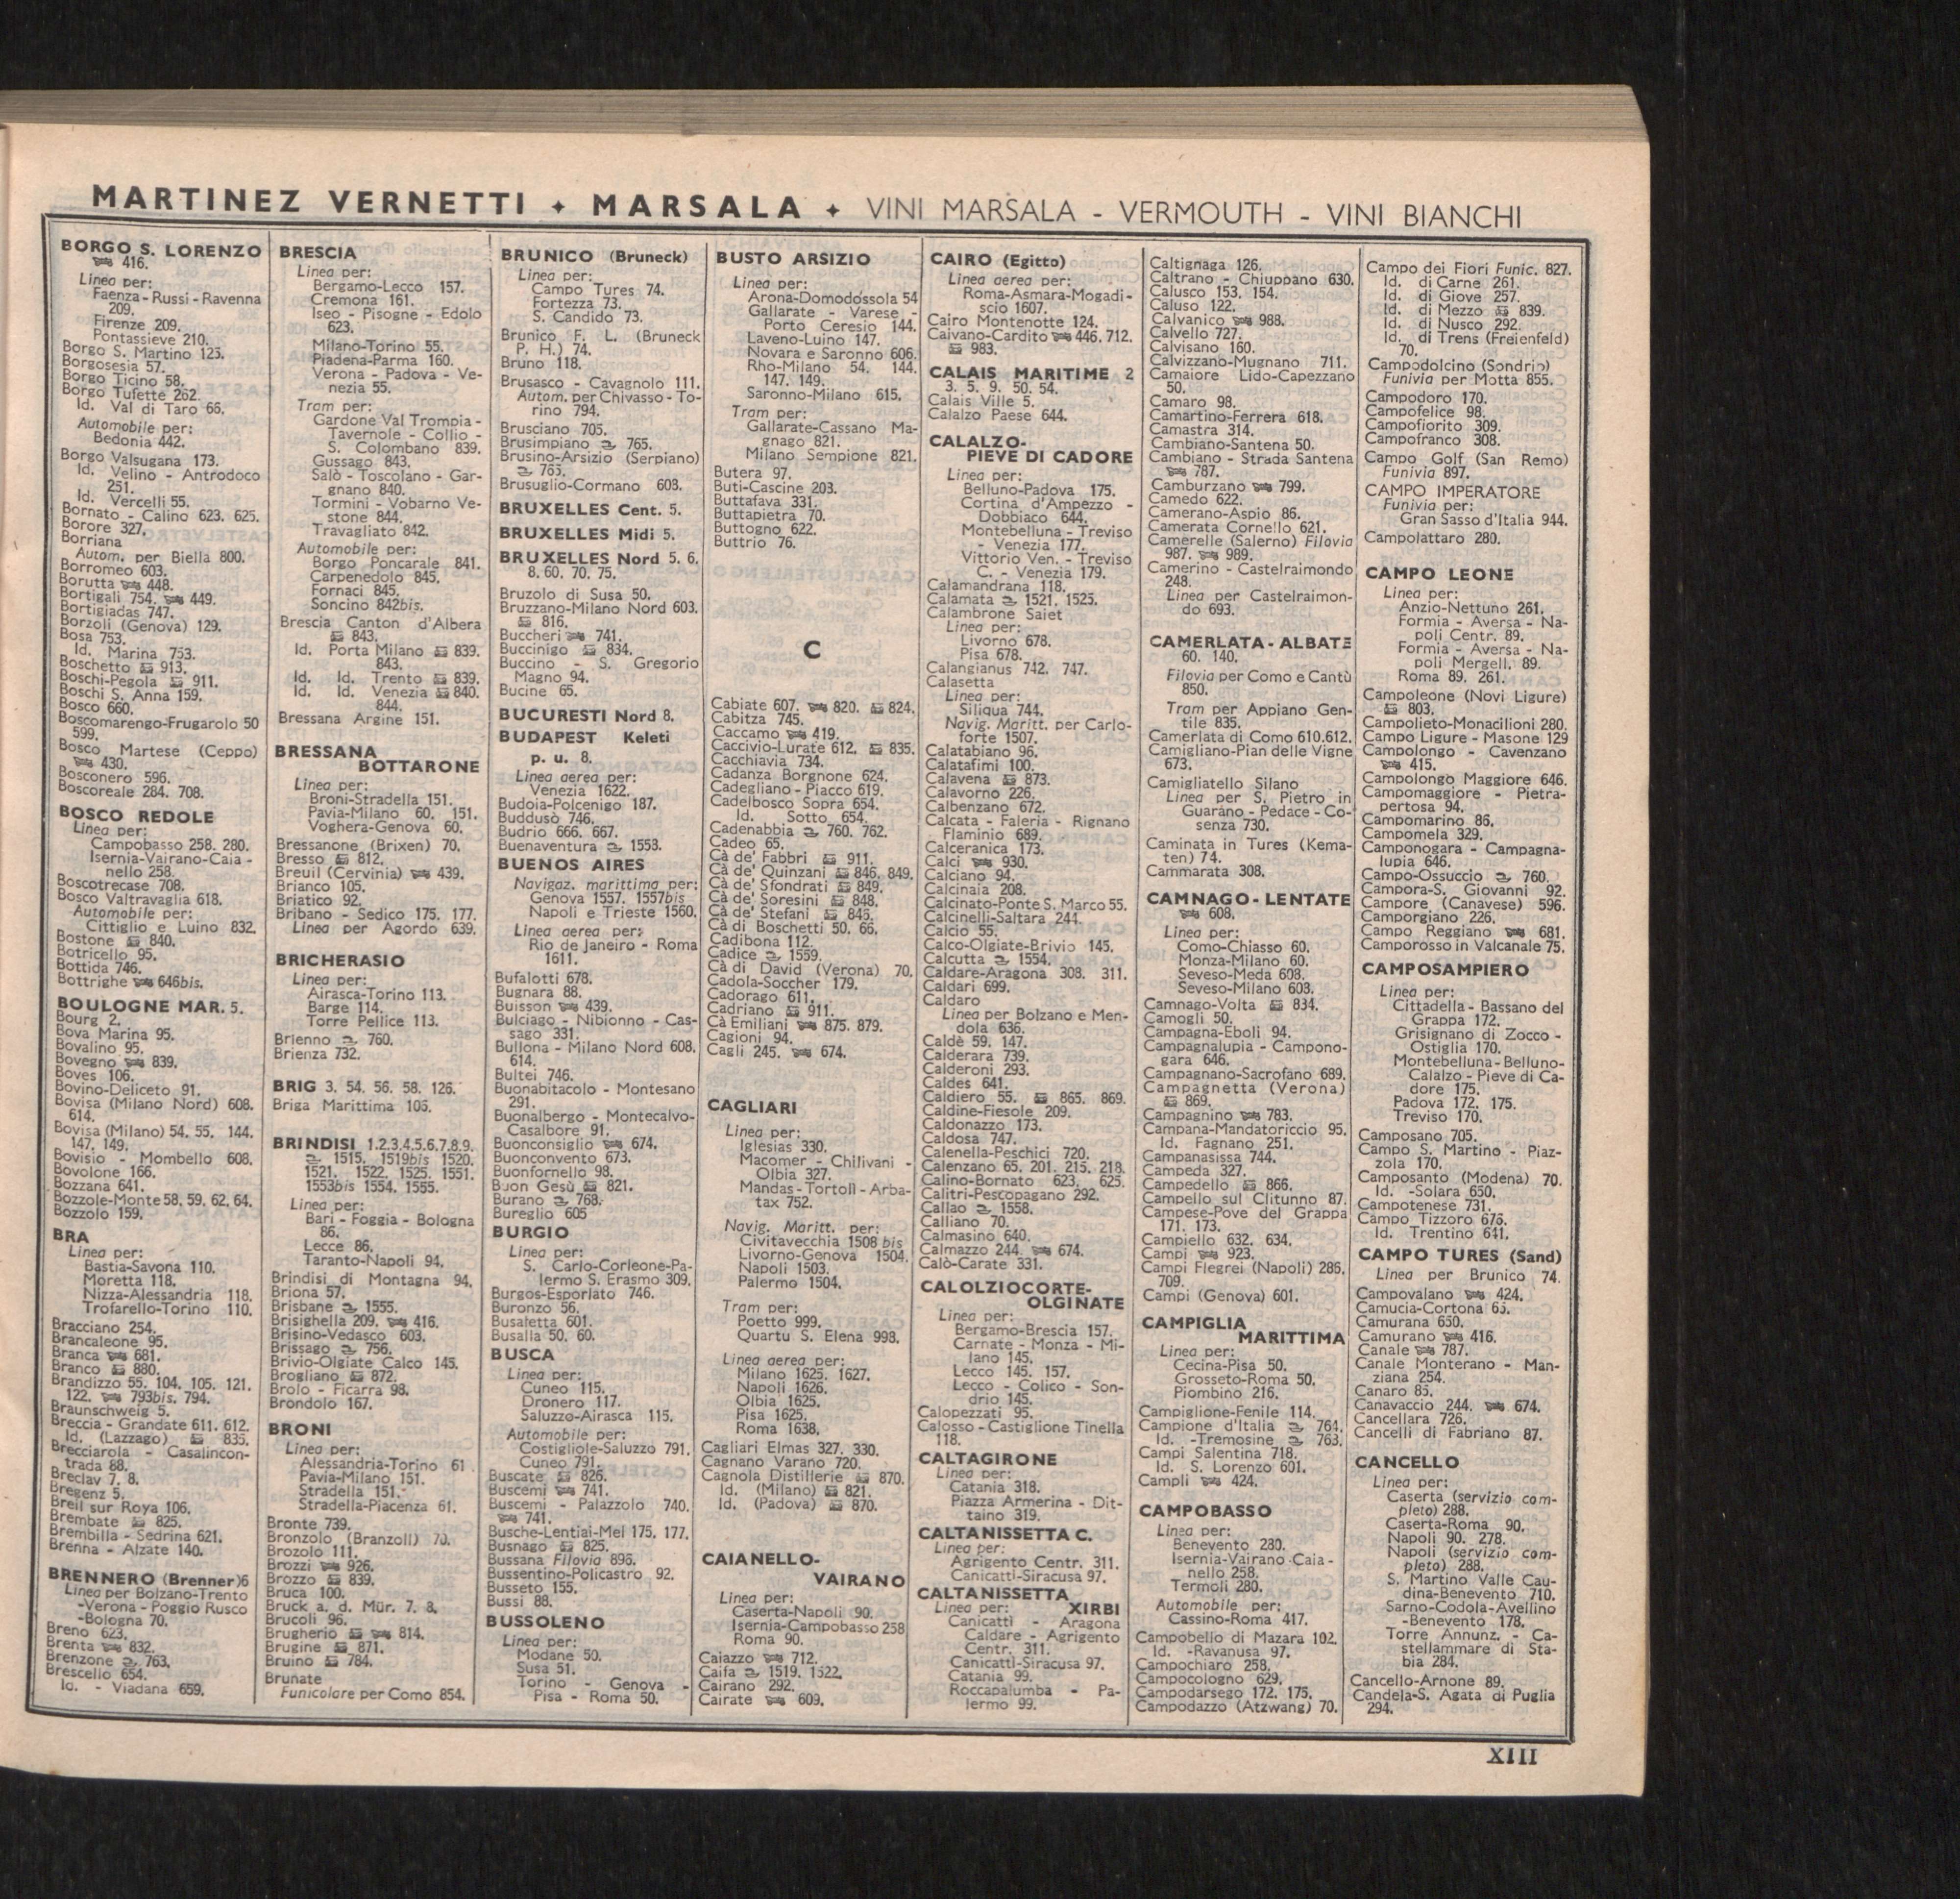 MARTINEZ VERNETTI ✦ MARSALA ✦ VINI MARSALA - VERMOUTH - VINI BIANCHI
BORGO S. LORENZO
416.
Linea per:
Faenza - Russi - Ravenna
209.
Firenze 209.
Pontassieve 210.
Borgo S. Martino 125.
Borgosesia 57.
Borgo Ticino 58.
Borgo Tufette 262.
Id. Val di Taro 66.
Automobile per:
Bedonia 442.
Borgo Valsugana 173.
Id. Velino - Antrodoco
251.
Id. Vercelli 55.
Bornato - Calino 623. 625.
Borore 327.
Borriana
Autom. per Biella 800.
Borromeo 603.
Borutta 448.
Bortigali 754. 449.
Bortigiadas 747.
Borzoli (Genova) 129.
Bosa 753.
Id. Marina 753.
Boschetto 913.
Boschi-Pegola 911.
Boschi S. Anna 159.
Bosco 660.
Boscomarengo-Frugarolo 50
599.
Bosco Martese (Ceppo)
430.
Bosconero 596.
Boscoreale 284. 708.
BOSCO REDOLE
Linea per:
Campobasso 258. 280.
Isernia-Vairano-Caia-
nello 258.
Boscotrecase 708.
Bosco Valtravaglia 618.
Automobile per:
Cittiglio e Luino 832.
Bostone 840.
Botricello 95.
Bottida 746.
Bottrighe 646bis.
BOULOGNE MAR. 5.
Bourg 2.
Bova Marina 95.
Bovalino 95.
Bovegno 839.
Boves 106.
Bovino-Deliceto 91.
Bovisa (Milano Nord) 608.
614.
Bovisa (Milano) 54. 55. 144.
147. 149.
Bovisio - Mombello 608.
Bovolone 166.
Bozzana 641.
Bozzole-Monte 58. 59. 62. 64.
Bozzolo 159.
BRA
Linea per:
Bastia-Savona 110.
Moretta 118.
Nizza-Alessandria 118.
Trofarello-Torino 110.
Bracciano 254.
Brancaleone 95.
Branca 681.
Branco 880.
Brandizzo 55. 104. 105. 121.
122. 793bis. 794.
Braunschweig 5.
Breccia - Grandate 611. 612.
Id. (Lazzago) 835.
Brecciarola - Casalincon-
trada 88.
Breclav 7. 8.
Bregenz 5.
Breil sur Roya 106.
Brembate 825.
Brembilla - Sedrina 621.
Brenna - Alzate 140.
BRENNERO (Brenner) 6
Linea per Bolzano-Trento
-Verona - Poggio Rusco
-Bologna 70.
Breno 623.
Brenta 832.
Brenzone 763.
Brescello 654.
Id. - Viadana 659.
BRESCIA
Linea per:
Bergamo-Lecco 157.
Cremona 161.
Iseo - Pisogne - Edolo
623.
Milano-Torino 55.
Piadena-Parma 160.
Verona - Padova - Ve-
nezia 55.
Tram per:
Gardone Val Trompia -
Tavernole - Collio -
S. Colombano 839.
Gussago 843.
Salò - Toscolano - Gar-
gnano 840.
Tormini - Vobarno Ve-
stone 844.
Travagliato 842.
Automobile per:
Borgo Poncarale 841.
Carpenedolo 845.
Fornaci 845.
Soncino 842bis.
Brescia Canton d'Albera
843.
Id. Porta Milano 839.
843.
Id. Id. Trento 839.
Id. Id. Venezia 840.
844.
Bressana Argine 151.
BRESSANA
BOTTARONE
Linea per:
Broni-Stradella 151.
Pavia-Milano 60. 151.
Voghera-Genova 60.
Bressanone (Brixen) 70.
Bresso 812.
Breuil (Cervinia) 439.
Brianco 105.
Briatico 92.
Bribano - Sedico 175. 177.
Linea per Agordo 639.
BRICHERASIO
Linea per:
Airasca-Torino 113.
Barge 114.
Torre Pellice 113.
Brienno 760.
Brienza 732.
BRIG 3. 54. 56. 58. 126.
Briga Marittima 106.
BRINDISI 1.2.3.4.5.6.7.8.9.
1515. 1519bis 1520.
1521. 1522. 1525. 1551.
1553bis 1554. 1555.
Linea per:
Bari - Foggia - Bologna
86.
Lecce 86.
Taranto-Napoli 94.
Brindisi di Montagna 94.
Briona 57.
Brisbane 1555.
Brisighella 209. 416.
Brisino-Vedasco 603.
Brissago 756.
Brivio-Olgiate Calco 145.
Brogliano 872.
Brolo - Ficarra 98.
Brondolo 167.
BRONI
Linea per:
Alessandria-Torino 61
Pavia-Milano 151.
Stradella 151.
Stradella-Piacenza 61.
Bronte 739.
Bronzolo (Branzoll) 70.
Brozolo 111.
Brozzi 926.
Brozzo 839.
Bruca 100.
Bruck a. d. Mür. 7. 8.
Brucoli 96.
Brugherio 814.
Brugine 871.
Bruino 784.
Brunate
Funicolare per Como 854.
BRUNICO (Bruneck)
Linea per:
Campo Tures 74.
Fortezza 73.
S. Candido 73.
Brunico F. L. (Bruneck
P. H.) 74.
Bruno 118.
Brusasco - Cavagnolo 111.
Autom. per Chivasso - To-
rino 794.
Brusciano 705.
Brusimpiano 765.
Brusino-Arsizio (Serpiano)
765.
Brusuglio-Cormano 603.
BRUXELLES Cent. 5.
BRUXELLES Midi 5.
BRUXELLES Nord 5. 6.
8. 60. 70. 75.
Bruzolo di Susa 50.
Bruzzano-Milano Nord 603.
816.
Buccheri 741.
Buccinigo 834.
Buccino - S. Gregorio
Magno 94.
Bucine 65.
BUCURESTI Nord 8.
BUDAPEST Keleti
p. u. 8.
Linea aerea per:
Venezia 1622.
Budoia-Polcenigo 187.
Buddusò 746.
Budrio 666. 667.
Buenaventura 1558.
BUENOS AIRES
Navigaz. marittima per:
Genova 1557. 1557bis
Napoli e Trieste 1560.
Linea aerea per:
Rio de Janeiro - Roma
1611.
Bufalotti 678.
Bugnara 88.
Buisson 439.
Bulciago - Nibionno - Cas-
sago 331.
Bullona - Milano Nord 608.
614.
Bultei 746.
Buonabitacolo - Montesano
291.
Buonalbergo - Montecalvo-
Casalbore 91.
Buonconsiglio 674.
Buonconvento 673.
Buonfornello 98.
Buon Gesù 821.
Burano 768.
Bureglio 605
BURGIO
Linea per:
S. Carlo-Corleone-Pa-
lermo S. Erasmo 309.
Burgos-Esporlato 746.
Buronzo 56.
Busafetta 601.
Busalla 50. 60.
BUSCA
Linea per:
Cuneo 115.
Dronero 117.
Saluzzo-Airasca 115.
Automobile per:
Costigliole-Saluzzo 791.
Cuneo 791.
Buscate 826.
Buscemi 741.
Buscemi - Palazzolo 740.
741.
Busche-Lentiai-Mel 175. 177.
Busnago 825.
Bussana Filovia 896.
Bussentino-Policastro 92.
Busseto 155.
Bussi 88.
BUSSOLENO
Linea per:
Modane 50.
Susa 51.
Torino - Genova -
Pisa - Roma 50.
BUSTO ARSIZIO
Linea per:
Arona-Domodossola 54
Gallarate - Varese -
Porto Ceresio 144.
Laveno-Luino 147.
Novara e Saronno 606.
Rho-Milano 54. 144.
147. 149.
Saronno-Milano 615.
Tram per:
Gallarate-Cassano Ma-
gnago 821.
Milano Sempione 821.
Butera 97.
Buti-Cascine 203.
Buttafava 331.
Buttapietra 70.
Buttogno 622.
Buttrio 76.
C
Cabiate 607. 820. 824.
Cabitza 745.
Caccamo 419.
Caccivio-Lurate 612. 835.
Cacchiavia 734.
Cadanza Borgnone 624.
Cadegliano - Piacco 619.
Cadelbosco Sopra 654.
Id. Sotto 654.
Cadenabbia 760. 762.
Cadeo 65.
Cà de' Fabbri 911.
Cà de' Quinzani 846. 849.
Cà de' Sfondrati 849.
Cà de' Soresini 848.
Cà de' Stefani 846.
Cà di Boschetti 50. 66.
Cadibona 112.
Cadice 1559.
Cà di David (Verona) 70.
Cadola-Soccher 179.
Cadorago 611.
Cadriano 911.
Cà Emiliani 875. 879.
Cagioni 94.
Cagli 245. 674.
CAGLIARI
Linea per:
Iglesias 330.
Macomer - Chilivani -
Olbia 327.
Mandas - Tortolì - Arba-
tax 752.
Navig. Maritt. per:
Civitavecchia 1508 bis
Livorno-Genova 1504.
Napoli 1503.
Palermo 1504.
Tram per:
Poetto 999.
Quartu S. Elena 998.
Linea aerea per:
Milano 1625. 1627.
Napoli 1626.
Olbia 1625.
Pisa 1625.
Roma 1638.
Cagliari Elmas 327. 330.
Cagnano Varano 720.
Cagnola Distillerie 870.
Id. (Milano) 821.
Id. (Padova) 870.
CAIANELLO-
VAIRANO
Linea per:
Caserta-Napoli 90.
Isernia-Campobasso 258
Roma 90.
Caiazzo 712.
Caifa 1519. 1522.
Cairano 292.
Cairate 609.
CAIRO (Egitto)
Linea aerea per:
Roma-Asmara-Mogadi-
scio 1607.
Cairo Montenotte 124.
Caivano-Cardito 446. 712.
983.
CALAIS MARITIME 2
3. 5. 9. 50. 54.
Calais Ville 5.
Calalzo Paese 644.
CALALZO-
PIEVE DI CADORE
Linea per:
Belluno-Padova 175.
Cortina d'Ampezzo -
Dobbiaco 644.
Montebelluna - Treviso
- Venezia 177.
Vittorio Ven. - Treviso
C. - Venezia 179.
Calamandrana 118.
Calamata 1521. 1525.
Calambrone Saiet
Linea per:
Livorno 678.
Pisa 678.
Calangianus 742. 747.
Calasetta
Linea per:
Siliqua 744.
Navig. Maritt. per Carlo-
forte 1507.
Calatabiano 96.
Calatafimi 100.
Calavena 873.
Calavorno 226.
Calbenzano 672.
Calcata - Faleria - Rignano
Flaminio 689.
Calceranica 173.
Calci 930.
Calciano 94.
Calcinaia 208.
Calcinato-Ponte S. Marco 55.
Calcinelli-Saltara 244.
Calcio 55.
Calco-Olgiate-Brivio 145.
Calcutta 1554.
Caldare-Aragona 308. 311.
Caldari 699.
Caldaro
Linea per Bolzano e Men-
dola 636.
Caldè 59. 147.
Calderara 739.
Calderoni 293.
Caldes 641.
Caldiero 55. 865. 869.
Caldine-Fiesole 209.
Caldonazzo 173.
Caldosa 747.
Calenella-Peschici 720.
Calenzano 65. 201. 215. 218.
Calino-Bornato 623. 625.
Calitri-Pescopagano 292.
Callao 1558.
Calliano 70.
Calmasino 640.
Calmazzo 244. 674.
Calò-Carate 331.
CALOLZIOCORTE-
OLGINATE
Linea per:
Bergamo-Brescia 157.
Carnate - Monza - Mi-
lano 145.
Lecco 145. 157.
Lecco - Colico - Son-
drio 145.
Calopezzati 95.
Calosso - Castiglione Tinella
118.
CALTAGIRONE
Linea per:
Catania 318.
Piazza Armerina - Dit-
taino 319.
CALTANISSETTA C.
Linea per:
Agrigento Centr. 311.
Canicattì-Siracusa 97.
CALTANISSETTA
XIRBI
Linea per:
Canicattì - Aragona
Caldare - Agrigento
Centr. 311.
Canicattì-Siracusa 97.
Catania 99.
Roccapalumba - Pa-
lermo 99.
Caltignaga 126.
Caltrano - Chiuppano 630.
Calusco 153. 154.
Caluso 122.
Calvanico 988.
Calvello 727.
Calvisano 160.
Calvizzano-Mugnano 711.
Camaiore Lido-Capezzano
50.
Camaro 98.
Camartino-Ferrera 618.
Camastra 314.
Cambiano-Santena 50.
Cambiano - Strada Santena
787.
Camburzano 799.
Camedo 622.
Camerano-Aspio 86.
Camerata Cornello 621.
Camerelle (Salerno) Filovia
987. 989.
Camerino - Castelraimondo
248.
Linea per Castelraimon-
do 693.
CAMERLATA - ALBATE
60. 140.
Filovia per Como e Cantù
850.
Tram per Appiano Gen-
tile 835.
Camerlata di Como 610.612.
Camigliano-Pian delle Vigne
673.
Camigliatello Silano
Linea per S. Pietro in
Guarano - Pedace - Co-
senza 730.
Caminata in Tures (Kema-
ten) 74.
Cammarata 308.
CAMNAGO - LENTATE
608.
Linea per:
Como-Chiasso 60.
Monza-Milano 60.
Seveso-Meda 608.
Seveso-Milano 608.
Camnago-Volta 834.
Camogli 50.
Campagna-Eboli 94.
Campagnalupia - Campono-
gara 646.
Campagnano-Sacrofano 689.
Campagnetta (Verona)
869.
Campagnino 783.
Campana-Mandatoriccio 95.
Id. Fagnano 251.
Campanasissa 744.
Campeda 327.
Campedello 866.
Campello sul Clitunno 87.
Campese-Pove del Grappa
171. 173.
Campiello 632. 634.
Campi 923.
Campi Flegrei (Napoli) 286.
709.
Campi (Genova) 601.
CAMPIGLIA
MARITTIMA
Linea per:
Cecina-Pisa 50.
Grosseto-Roma 50.
Piombino 216.
Campiglione-Fenile 114.
Campione d'Italia 764.
Id. -Tremosine 763.
Campi Salentina 718.
Id. S. Lorenzo 601.
Campli 424.
CAMPOBASSO
Linea per:
Benevento 280.
Isernia-Vairano Caia-
nello 258.
Termoli 280.
Automobile per:
Cassino-Roma 417.
Campobello di Mazara 102.
Id. -Ravanusa 97.
Campochiaro 258.
Campocologno 629.
Campodarsego 172. 175.
Campodazzo (Atzwang) 70.
Campo dei Fiori Funic. 827.
Id. di Carne 261.
Id. di Giove 257.
Id. di Mezzo 839.
Id. di Nusco 292.
Id. di Trens (Freienfeld)
70.
Campodolcino (Sondrio)
Funivia per Motta 855.
Campodoro 170.
Campofelice 98.
Campofiorito 309.
Campofranco 308.
Campo Golf (San Remo)
Funivia 897.
CAMPO IMPERATORE
Funivia per:
Gran Sasso d'Italia 944.
Campolattaro 280.
CAMPO LEONE
Linea per:
Anzio-Nettuno 261.
Formia - Aversa - Na-
poli Centr. 89.
Formia - Aversa - Na-
poli Mergell. 89.
Roma 89. 261.
Campoleone (Novi Ligure)
803.
Campolieto-Monacilioni 280.
Campo Ligure - Masone 129
Campolongo - Cavenzano
415.
Campolongo Maggiore 646.
Campomaggiore - Pietra-
pertosa 94.
Campomarino 86.
Campomela 329.
Camponogara - Campagna-
lupia 646.
Campo-Ossuccio 760.
Campora-S. Giovanni 92.
Campore (Canavese) 596.
Camporgiano 226.
Campo Reggiano 681.
Camporosso in Valcanale 75.
CAMPOSAMPIERO
Linea per:
Cittadella - Bassano del
Grappa 172.
Grisignano di Zocco -
Ostiglia 170.
Montebelluna-Belluno-
Calalzo - Pieve di Ca-
dore 175.
Padova 172. 175.
Treviso 170.
Camposano 705.
Campo S. Martino - Piaz-
zola 170.
Camposanto (Modena) 70.
Id. -Solara 650.
Campotenese 731.
Campo Tizzoro 676.
Id. Trentino 641.
CAMPO TURES (Sand)
Linea per Brunico 74.
Campovalano 424.
Camucia-Cortona 65.
Camurana 650.
Camurano 416.
Canale 787.
Canale Monterano - Man-
ziana 254.
Canaro 85.
Canavaccio 244. 674.
Cancellara 726.
Cancelli di Fabriano 87.
CANCELLO
Linea per:
Caserta (servizio com-
pleto) 288.
Caserta-Roma 90.
Napoli 90. 278.
Napoli (servizio com-
pleto) 288.
S. Martino Valle Cau-
dina-Benevento 710.
Sarno-Codola-Avellino
-Benevento 178.
Torre Annunz. - Ca-
stellammare di Sta-
bia 284.
Cancello-Arnone 89.
Candela-S. Agata di Puglia
294.
XIII